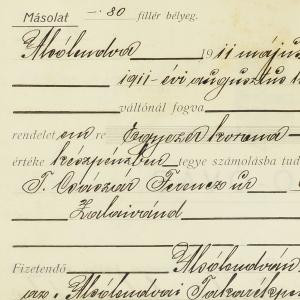 Másolat — 80 fillér bélyeg.
Alsólendva 1911 május
1911 évi augusztus h
váltónál fogva
rendeletem re Egyezer korona
értéke készpénzben tegye számolásba tud
T. Császár Ferencz úr
Zalaivánd
Fizetendő Alsólendván
az Alsólendvai Takarékpé